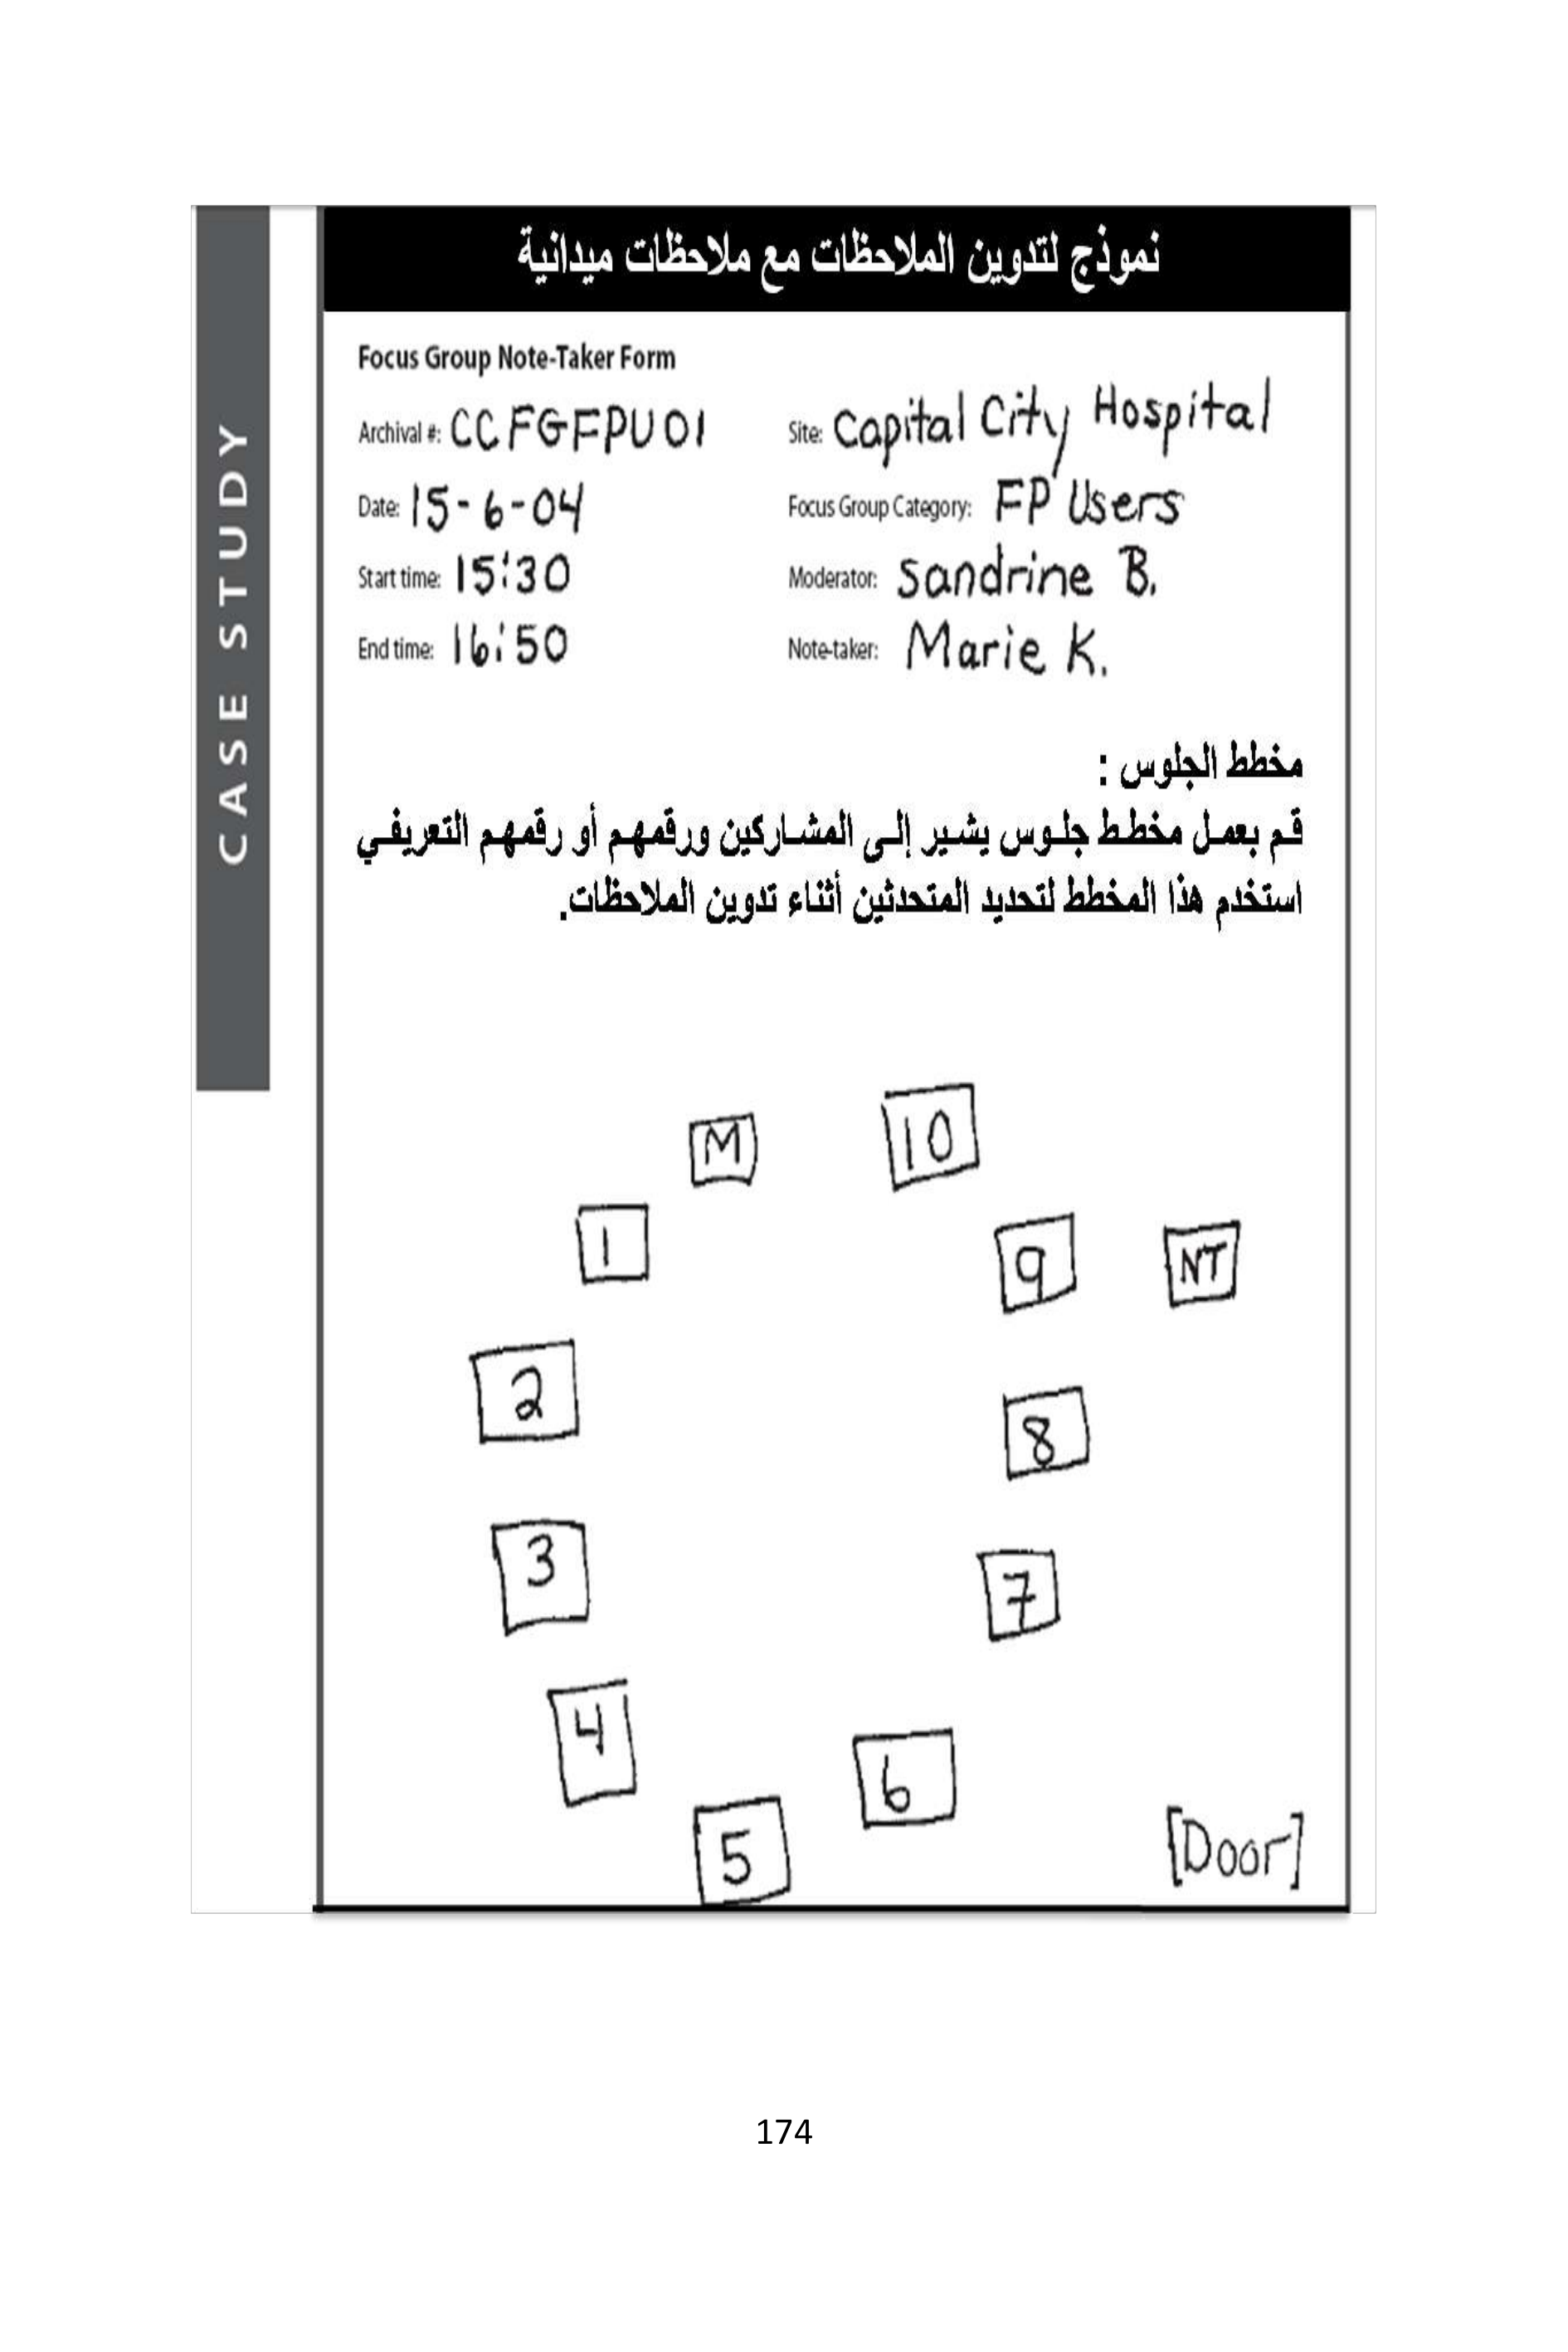 نموذج لتدوين الملاحظات مع ملاحظات ميدانية
CASE STUDY
Focus Group Note-Taker Form
Archival #: CCFGFPU01
Site: Capital City Hospital
Date: 15-6-04
Focus Group Category: FP Users
Start time: 15:30
Moderator: Sandrine B.
End time: 16:50
Note-taker: Marie K.
مخطط الجلوس :
قم بعمل مخطط جلوس يشير إلى المشاركين ورقمهم أو رقمهم التعريفي
استخدم هذا المخطط لتحديد المتحدثين أثناء تدوين الملاحظات.
M
10
1
9
NT
2
8
3
7
4
6
5
[Door]
174